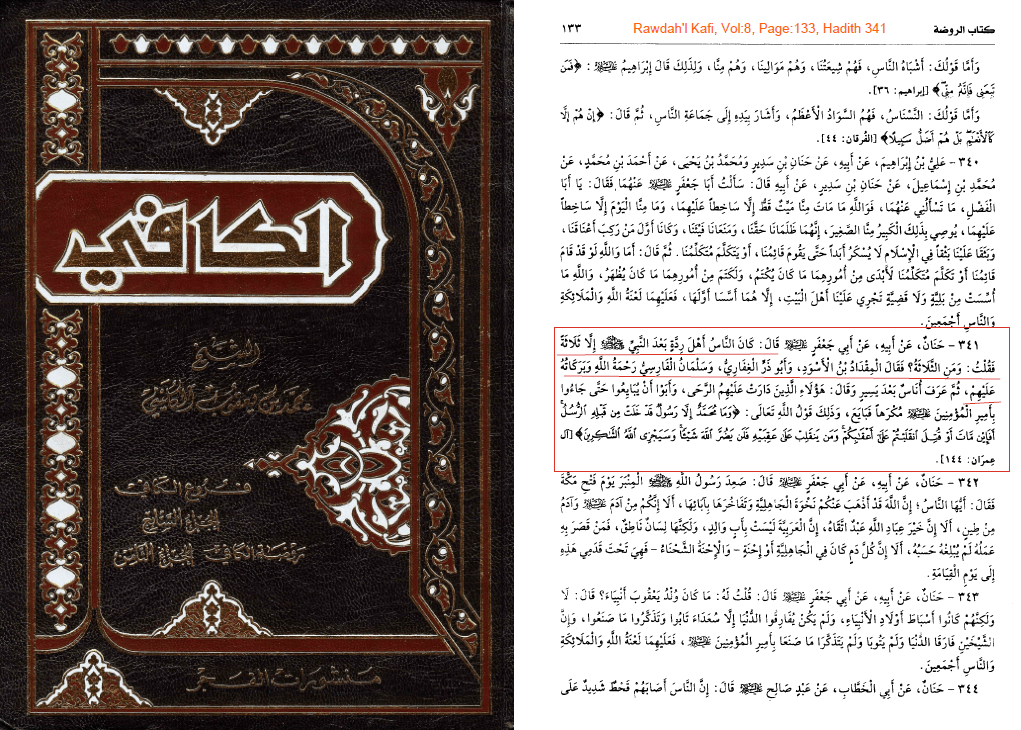 الكافي
الشيخ
فروع الكافي
الجزء السابع
روضة الكافي الجزء الثامن
منشورات الفجر
كتاب الروضة
Rawdah'l Kafi, Vol:8, Page:133, Hadith 341
١٣٣
وَأَمَّا قَوْلُكَ: أَشْبَاهُ النَّاسِ، فَهُمْ شِيعَتُنَا، وَهُمْ مَوَالِينَا، وَهُمْ مِنَّا، وَلِذَلِكَ قَالَ إِبْرَاهِيمُ عَلَيْهِ السَّلَامُ: ﴿فَمَن
تَبِعَنِي فَإِنَّهُ مِنِّي﴾ [إبراهيم: ٣٦].
وَأَمَّا قَوْلُكَ: النَّسْنَاسُ، فَهُمُ السَّوَادُ الْأَعْظَمُ، وَأَشَارَ بِيَدِهِ إِلَى جَمَاعَةِ النَّاسِ، ثُمَّ قَالَ: ﴿إِنْ هُمْ إِلَّا
كَالْأَنْعَامِ بَلْ هُمْ أَضَلُّ سَبِيلًا﴾ [الفُرقان: ٤٤].
٣٤٠ - عَلِيُّ بْنُ إِبْرَاهِيمَ، عَنْ أَبِيهِ، عَنْ حَنَانِ بْنِ سَدِيرٍ وَمُحَمَّدُ بْنُ يَحْيَى، عَنْ أَحْمَدَ بْنِ مُحَمَّدٍ، عَنْ
مُحَمَّدِ بْنِ إِسْمَاعِيلَ، عَنْ حَنَانِ بْنِ سَدِيرٍ، عَنْ أَبِيهِ قَالَ: سَأَلْتُ أَبَا جَعْفَرٍ عَلَيْهِ السَّلَامُ عَنْهُمَا فَقَالَ: يَا أَبَا
الْفَضْلِ، مَا تَسْأَلُنِي عَنْهُمَا، فَوَاللَّهِ مَا مَاتَ مِنَّا مَيِّتٌ قَطُّ إِلَّا سَاخِطاً عَلَيْهِمَا، وَمَا مِنَّا الْيَوْمَ إِلَّا سَاخِطاً
عَلَيْهِمَا، يُوصِي بِذَلِكَ الْكَبِيرُ مِنَّا الصَّغِيرَ، إِنَّهُمَا ظَلَمَانَا حَقَّنَا، وَمَنَعَانَا فَيْئَنَا، وَكَانَا أَوَّلَ مَنْ رَكِبَ أَعْنَاقَنَا،
وَبَثَقَا عَلَيْنَا بَثْقاً فِي الْإِسْلَامِ لَا يُسْكَرُ أَبَداً حَتَّى يَقُومَ قَائِمُنَا، أَوْ يَتَكَلَّمَ مُتَكَلِّمُنَا. ثُمَّ قَالَ: أَمَا وَاللَّهِ لَوْ قَدْ قَامَ
قَائِمُنَا أَوْ تَكَلَّمَ مُتَكَلِّمُنَا لَأَبْدَى مِنْ أُمُورِهِمَا مَا كَانَ يُكْتَمُ، وَلَكَتَمَ مِنْ أُمُورِهِمَا مَا كَانَ يُظْهَرُ، وَاللَّهِ مَا
أُسِّسَتْ مِنْ بَلِيَّةٍ وَلَا قَضِيَّةٍ تَجْرِي عَلَيْنَا أَهْلَ الْبَيْتِ، إِلَّا هُمَا أَسَّسَا أَوَّلَهَا، فَعَلَيْهِمَا لَعْنَةُ اللَّهِ وَالْمَلَائِكَةِ
وَالنَّاسِ أَجْمَعِينَ.
٣٤١ - حَنَانٌ، عَنْ أَبِيهِ، عَنْ أَبِي جَعْفَرٍ عَلَيْهِ السَّلَامُ قَالَ: كَانَ النَّاسُ أَهْلَ رِدَّةٍ بَعْدَ النَّبِيِّ ﷺ إِلَّا ثَلَاثَةً
فَقُلْتُ: وَمَنِ الثَّلَاثَةُ؟ فَقَالَ الْمِقْدَادُ بْنُ الْأَسْوَدِ، وَأَبُو ذَرٍّ الْغِفَارِيُّ، وَسَلْمَانُ الْفَارِسِيُّ رَحْمَةُ اللَّهِ وَبَرَكَاتُهُ
عَلَيْهِمْ، ثُمَّ عَرَفَ أُنَاسٌ بَعْدَ يَسِيرٍ وَقَالَ: هَؤُلَاءِ الَّذِينَ دَارَتْ عَلَيْهِمُ الرَّحَى، وَأَبَوْا أَنْ يُبَايِعُوا حَتَّى جَاءُوا
بِأَمِيرِ الْمُؤْمِنِينَ عَلَيْهِ السَّلَامُ مُكْرَهاً فَبَايَعَ، وَذَلِكَ قَوْلُ اللَّهِ تَعَالَى: ﴿وَمَا مُحَمَّدٌ إِلَّا رَسُولٌ قَدْ خَلَتْ مِن قَبْلِهِ الرُّسُلُ
أَفَإِيْن مَّاتَ أَوْ قُتِلَ انقَلَبْتُمْ عَلَى أَعْقَابِكُمْ وَمَن يَنقَلِبْ عَلَى عَقِبَيْهِ فَلَن يَضُرَّ اللَّهَ شَيْئًا وَسَيَجْزِي اللَّهُ الشَّاكِرِينَ﴾ [آل
عِمرَان: ١٤٤].
٣٤٢ - حَنَانٌ، عَنْ أَبِيهِ، عَنْ أَبِي جَعْفَرٍ عَلَيْهِ السَّلَامُ قَالَ: صَعِدَ رَسُولُ اللَّهِ ﷺ الْمِنْبَرَ يَوْمَ فَتْحِ مَكَّةَ
فَقَالَ: أَيُّهَا النَّاسُ؛ إِنَّ اللَّهَ قَدْ أَذْهَبَ عَنْكُمْ نَخْوَةَ الْجَاهِلِيَّةِ وَتَفَاخُرَهَا بِآبَائِهَا، أَلَا إِنَّكُمْ مِنْ آدَمَ عَلَيْهِ السَّلَامُ وَآدَمُ
مِنْ طِينٍ، أَلَا إِنَّ خَيْرَ عِبَادِ اللَّهِ عَبْدٌ اتَّقَاهُ، إِنَّ الْعَرَبِيَّةَ لَيْسَتْ بِأَبٍ وَالِدٍ، وَلَكِنَّهَا لِسَانٌ نَاطِقٌ، فَمَنْ قَصَرَ بِهِ
عَمَلُهُ لَمْ يُبْلِغْهُ حَسَبُهُ، أَلَا إِنَّ كُلَّ دَمٍ كَانَ فِي الْجَاهِلِيَّةِ أَوْ إِحْنَةٍ - وَالْإِحْنَةُ الشَّحْنَاءُ - فَهِيَ تَحْتَ قَدَمِي هَذِهِ
إِلَى يَوْمِ الْقِيَامَةِ.
٣٤٣ - حَنَانٌ، عَنْ أَبِيهِ، عَنْ أَبِي جَعْفَرٍ عَلَيْهِ السَّلَامُ قَالَ: قُلْتُ لَهُ: مَا كَانَ وُلْدُ يَعْقُوبَ أَنْبِيَاءَ؟ قَالَ: لَا
وَلَكِنَّهُمْ كَانُوا أَسْبَاطَ أَوْلَادِ الْأَنْبِيَاءِ، وَلَمْ يَكُنْ يُفَارِقُوا الدُّنْيَا إِلَّا سُعَدَاءَ تَابُوا وَتَذَكَّرُوا مَا صَنَعُوا، وَإِنَّ
الشَّيْخَيْنِ فَارَقَا الدُّنْيَا وَلَمْ يَتُوبَا وَلَمْ يَتَذَكَّرَا مَا صَنَعَا بِأَمِيرِ الْمُؤْمِنِينَ عَلَيْهِ السَّلَامُ، فَعَلَيْهِمَا لَعْنَةُ اللَّهِ وَالْمَلَائِكَةِ
وَالنَّاسِ أَجْمَعِينَ.
٣٤٤ - حَنَانٌ، عَنْ أَبِي الْخَطَّابِ، عَنْ عَبْدٍ صَالِحٍ عَلَيْهِ السَّلَامُ قَالَ: إِنَّ النَّاسَ أَصَابَهُمْ قَحْطٌ شَدِيدٌ عَلَى